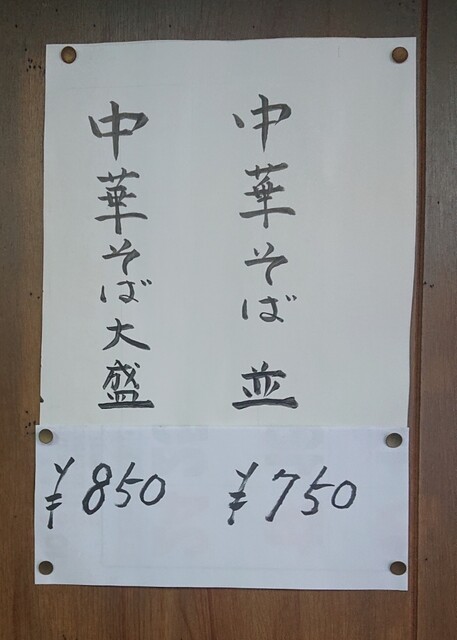 中華そば 並
¥750
中華そば大盛
¥850